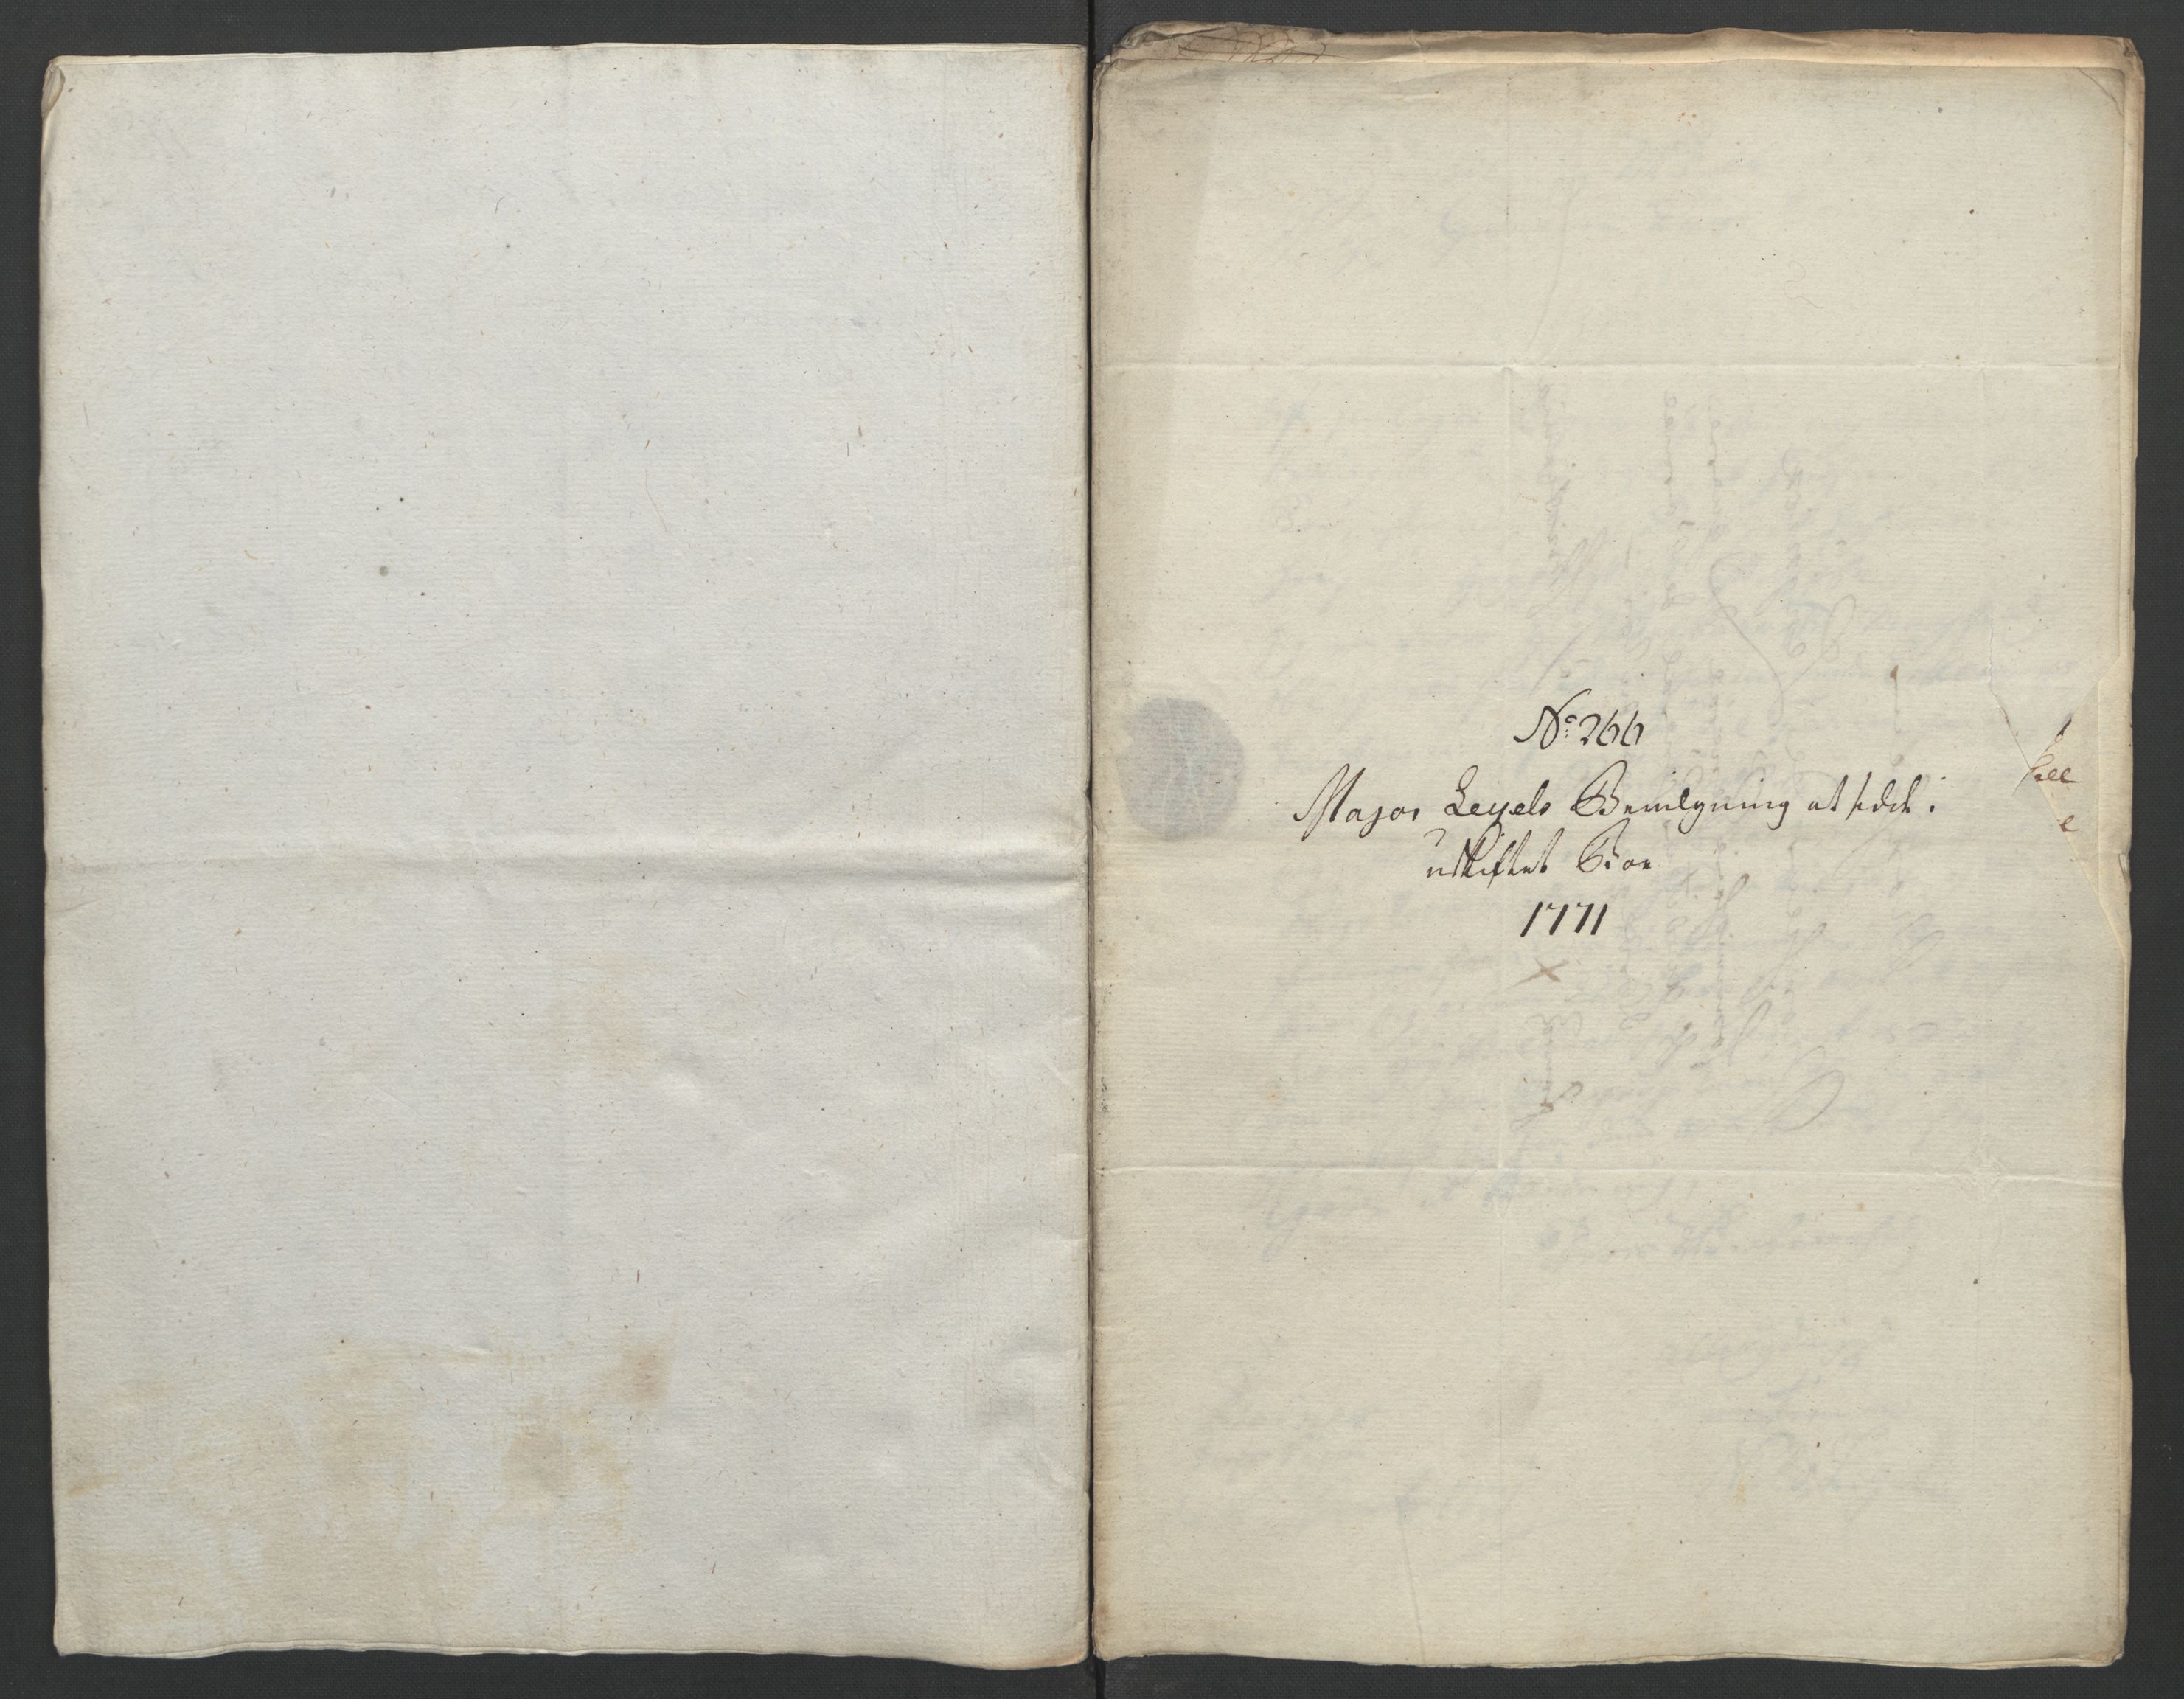 No: 266
Major Leyels Bevilgning at sidde i
uskiftet Boe
1771